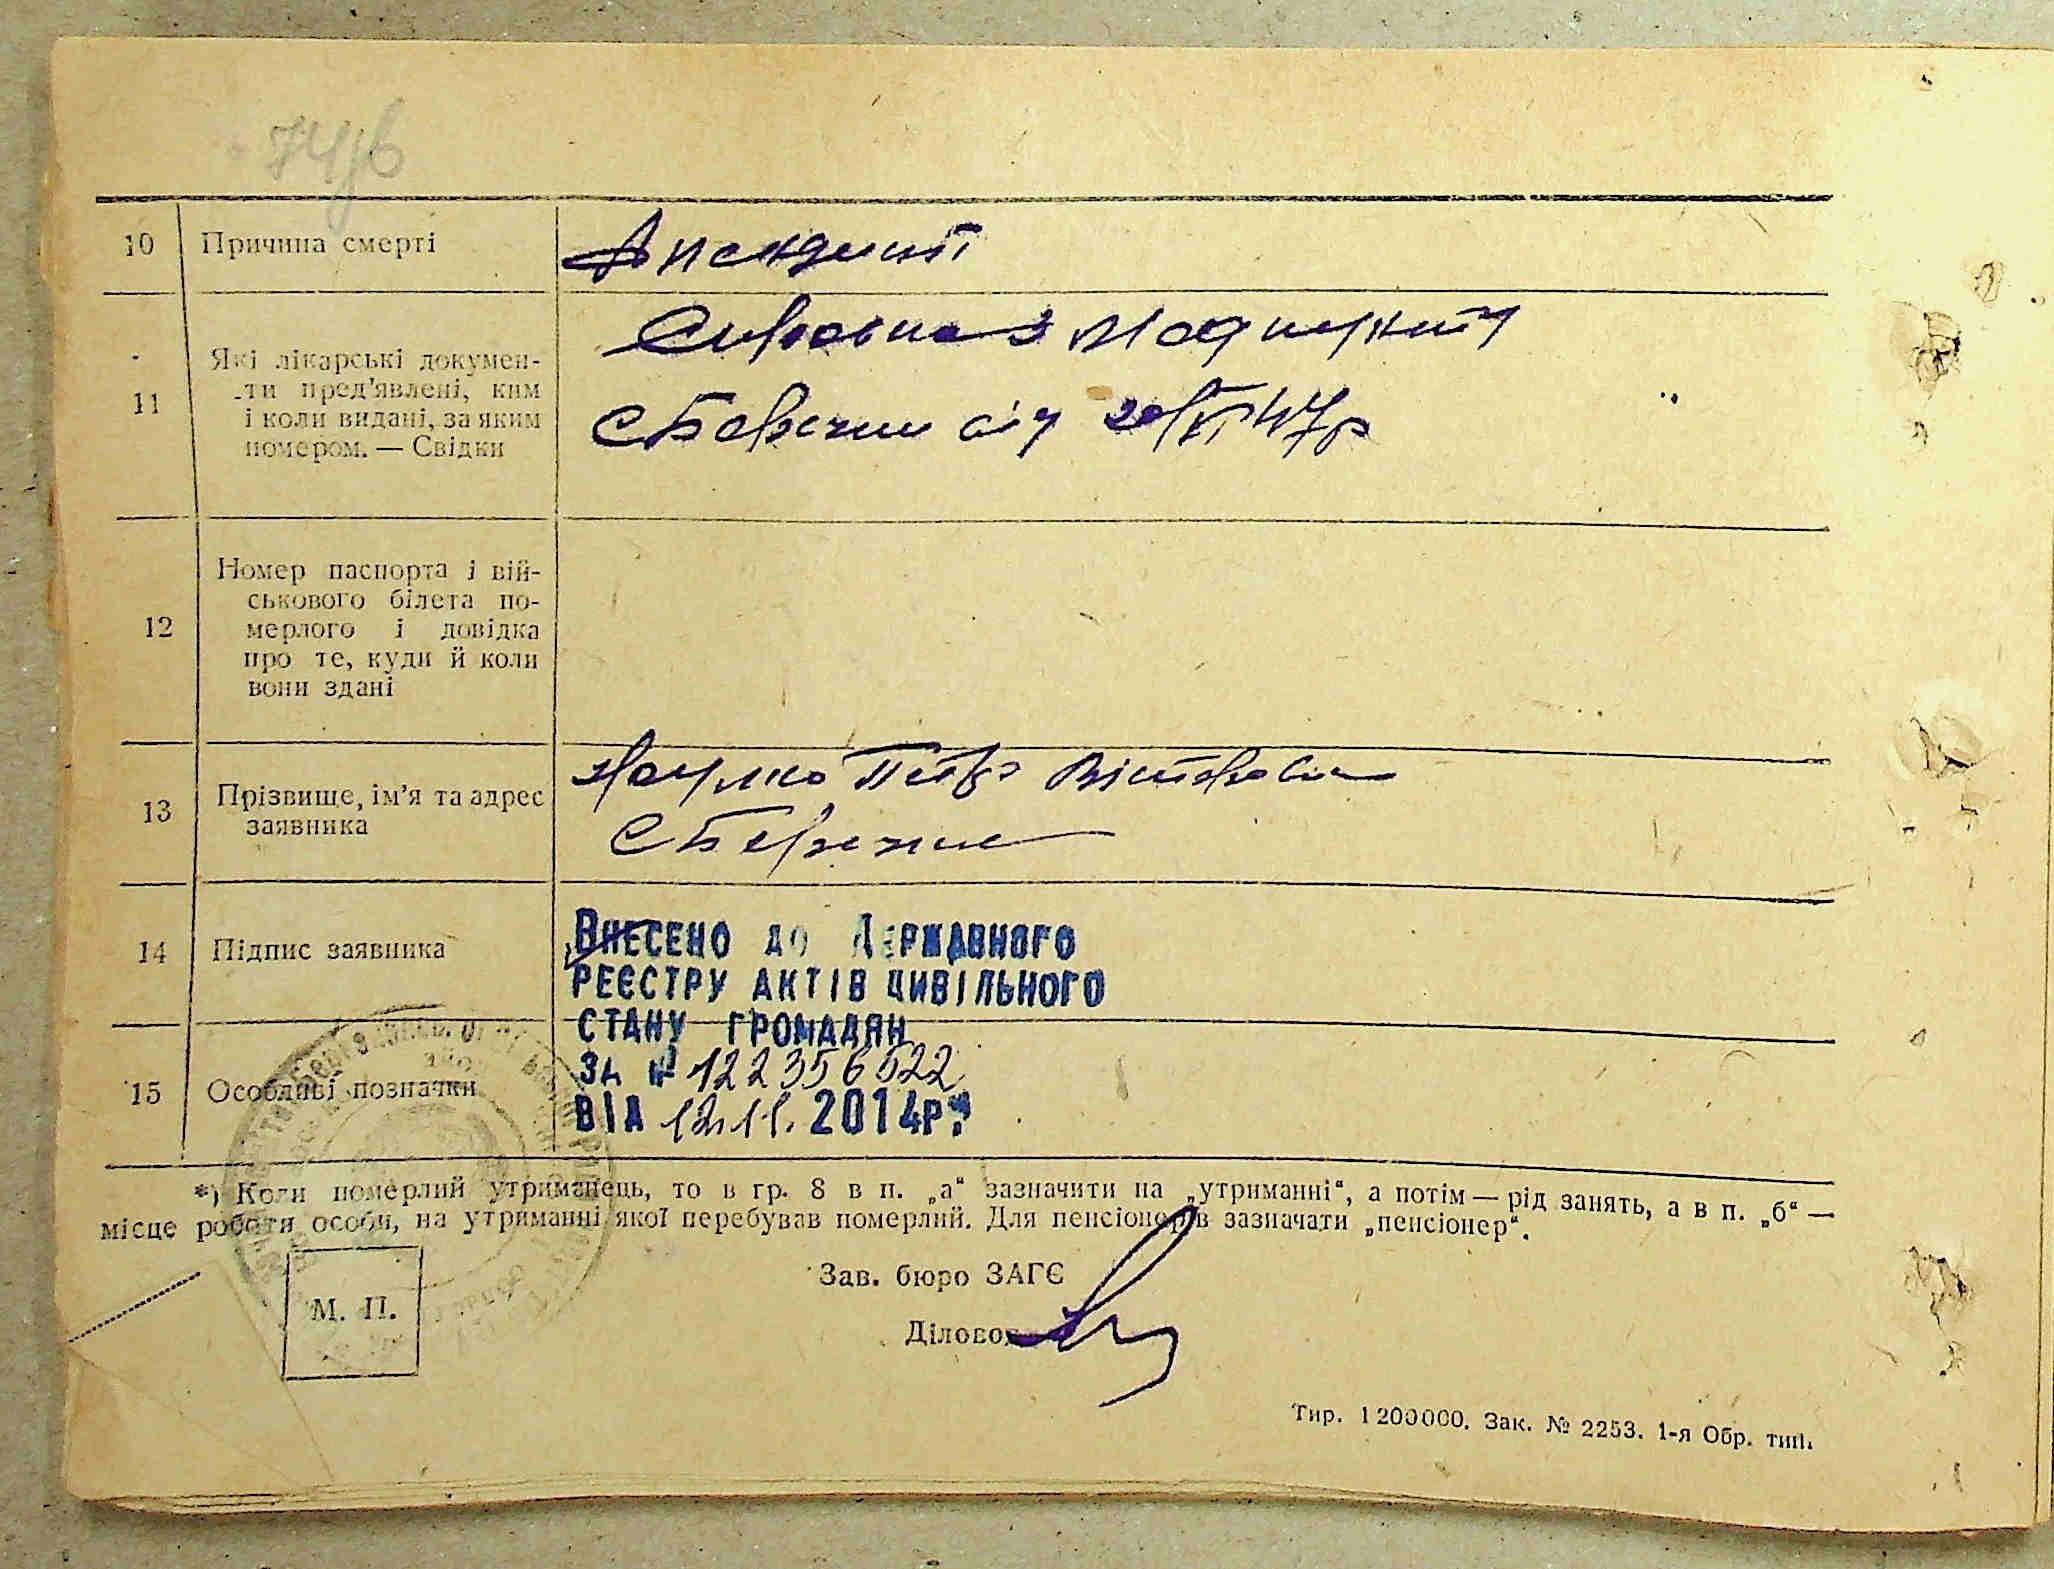 10 Причина смерті
Апендицит
11 Які лікарські докумен-
ти пред'явлені, ким
і коли видані, за яким
номером. — Свідки
Справка з Медпункту
с Бережне від 20/VI 47р
12 Номер паспорта і вій-
ськового білета по-
мерлого і довідка
про те, куди й коли
вони здані
13 Прізвище, ім'я та адрес
заявника
Петро
с Бережне
14 Підпис заявника
ВНЕСЕНО ДО ДЕРЖАВНОГО
РЕЄСТРУ АКТІВ ЦИВІЛЬНОГО
СТАНУ ГРОМАДЯН
15 Особливі позначки
ЗА № 122356522
ВІД 12.11. 2014р.
*) Коли померлий утриманець, то в гр. 8 в п. „а“ зазначити на „утриманні“, а потім — рід занять, а в п. „б“ —
місце роботи особи, на утриманні якої перебував померлий. Для пенсіонерів зазначати „пенсіонер“.
Зав. бюро ЗАГЄ
М. П.
Діловод
Тир. 1200000. Зак. № 2253. 1-я Обр. тип.